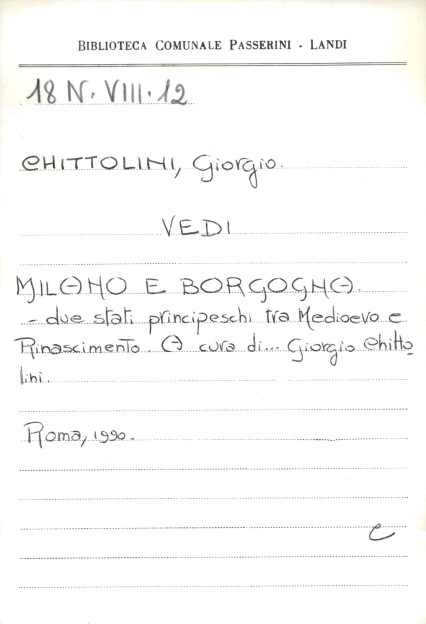 BIBLIOTECA COMUNALE PASSERINI - LANDI
18 N. VIII. 12
CHITTOLINI, Giorgio.
VEDI
MILANO E BORGOGNA.
- due stati principeschi tra Medioevo e
Rinascimento. A cura di... Giorgio Chitto
lini.
Roma, 1990.
C